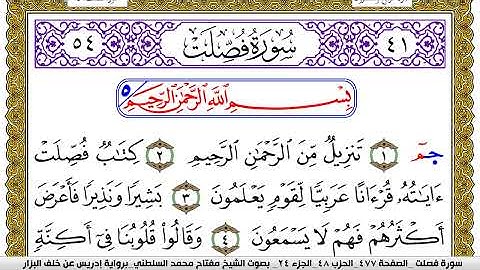 ٤١ سُورَةُ فُصِّلَتْ ٥٤
بِسْمِ ٱللَّهِ ٱلرَّحْمَٰنِ ٱلرَّحِيمِ ٥
حمٓ ١ تَنزِيلٌ مِّنَ ٱلرَّحْمَٰنِ ٱلرَّحِيمِ ٢ كِتَٰبٌ فُصِّلَتْ
ءَايَٰتُهُۥ قُرْءَانًا عَرَبِيًّا لِّقَوْمٍ يَعْلَمُونَ ٣ بَشِيرًا وَنَذِيرًا فَأَعْرَضَ
أَكْثَرُهُمْ فَهُمْ لَا يَسْمَعُونَ ٤ وَقَالُوا۟ قُلُوبُنَا فِىٓ أَكِنَّةٍ
سورة فصلت _ الصفحة ٤٧٧_ الحزب ٤٨_ الجزء ٢٤_ بصوت الشيخ مفتاح محمد السلطني_ برواية إدريس عن خلف البزار